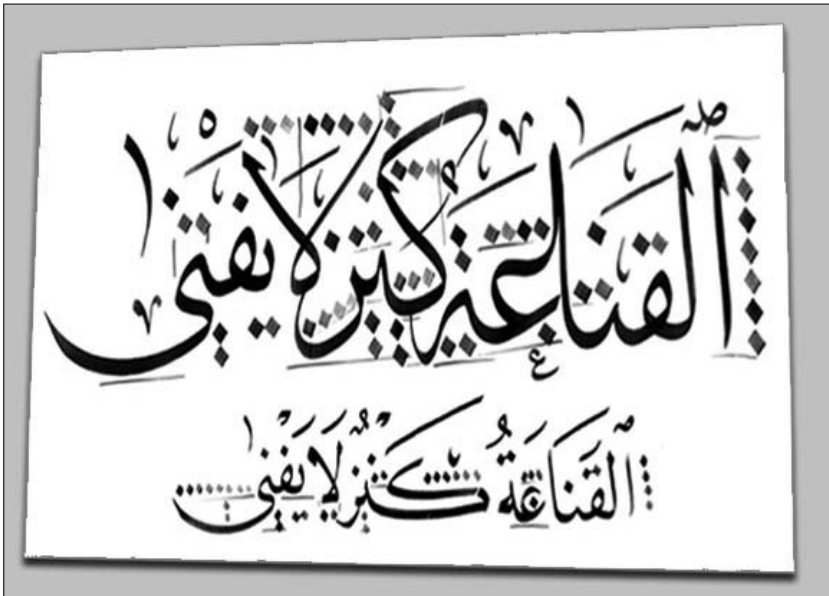 القناعة كنز لا يفنى
القَناعَةُ كَنْزٌ لَا يَفْنى